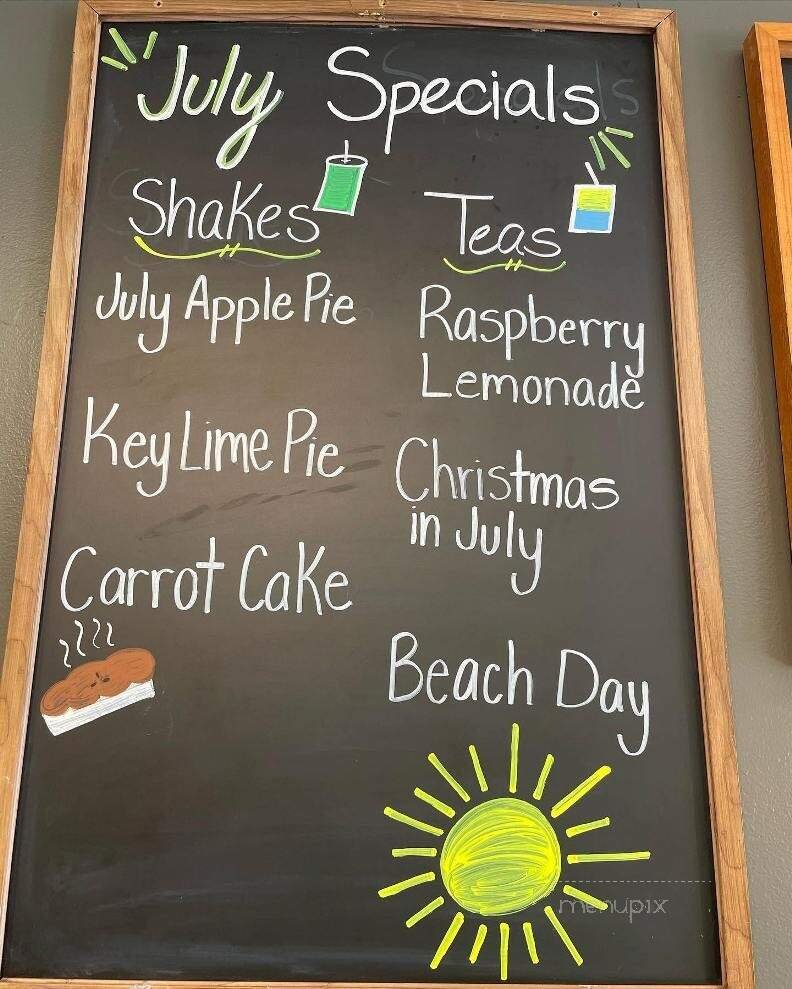 July Specials
Shakes
July Apple Pie
Key Lime Pie
Carrot Cake
Teas
Raspberry
Lemonade
Christmas
in July
Beach Day
menupix